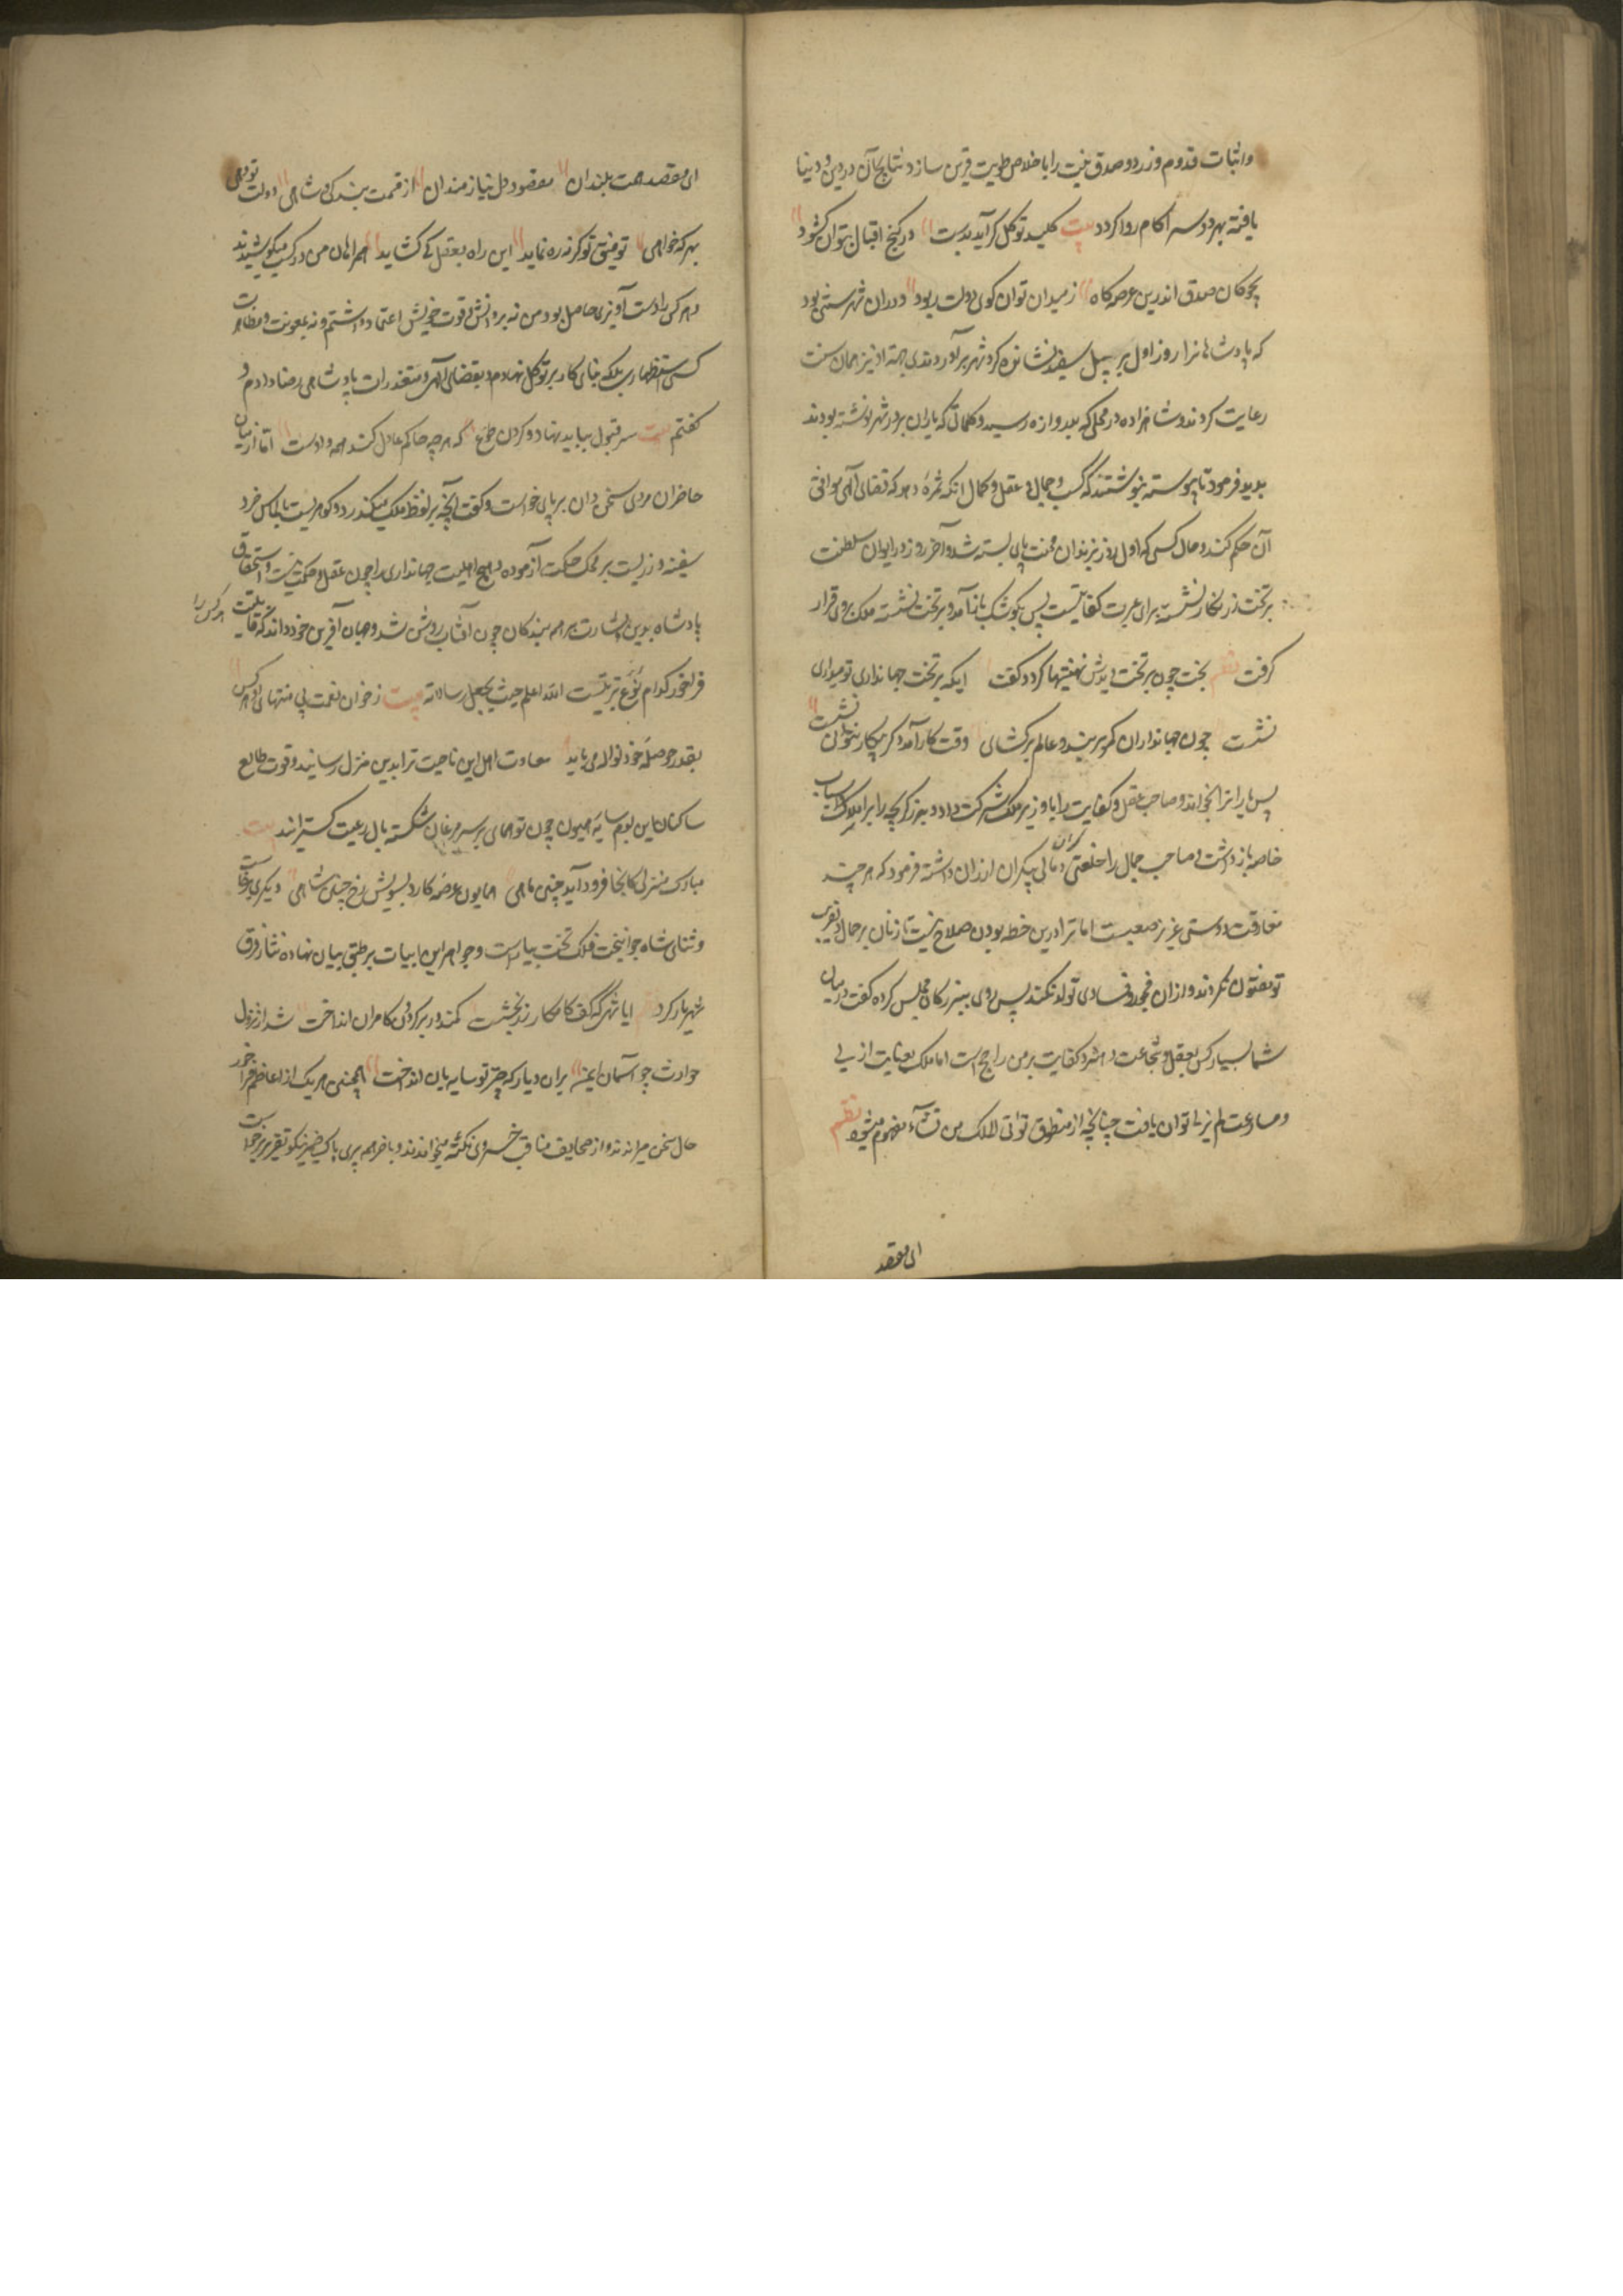 واثبات قدوم وزردو صدق نیت را با خلاص طویت قرین سازد نتایج آن در دین و دنیا
یافته بهر دو سرا کام روا کردد بیت کلید توکل کر آید بدست در کنج اقبال بتوان کشود
بچوکان صدق اندرین عرصه کاه ز میدان توان کوی دولت ربود ودران شهر سنتی بود
که پادشاهانرا روز اول بر پیل سفید نشانده کرد شهر بر آوردندی جهة او نیز همان سنت
رعایت کردند و شاهزاده در محلی که بدروازه رسید و کلماتی که یاران بر در شهر نوشته بودند
بدید فرمود تا پیوسته بنوشتند که کسب و جمال و عقل و کمال انکه ثمره دهد که قضای آلهی موافق
آن حکم کند و حال کسی که اول روز بزندان محنت پای بسته شد و آخر روز در ایوان سلطنت
بر تخت زرنکار نشسته برای عبرت کفایتست پس بکوشک باز آمد و بر تخت نشسته ملک بروی قرار
کرفت نظم بخت چون بر تخت دیدش تهنیتها کرد و کفت ایکه بر تخت جهانداری تو میداری
نشست چون جهانداران کمر بربند و عالم بر کشای وقت کار آمد و کر بیکار نتوان نشست
پس یاران را بخواند و صاحب عقل و کفایت را با وزیر ملک شرکت داد و بزرکر بچه را بر املاک و اسباب
خاصه باز داشت و صاحب جمال را خلعتی کران و مالی بیکران ارزان داشته فرمود که هر چند
مفارقت دوستی عزیز صعبست اما ترا درین خطه بودن صلاح نیست تا زنان بر جمال دلفریب
تو مفتون نکردند و ازان فجور و فسادی تولد نکند پس روی ببزرکان مجلس کرده کفت در میان
شما بسیار کس بعقل و شجاعت و هنر و کفایت بر من راجح است اما ملک بعنایت ازلی
و مساعدت لم یزلی توان یافت چنانچه از منطوق تؤتی الملک من تشاء مفهوم میشود نظم
ای مقصد
ای مقصد همت بلندان مقصود دل نیازمندان از قسمت بندکی و شاهی دولت تو دهی
بهر که خواهی توفیق تو کر نه ره نماید این راه بعقل کی کشاید همراهان من در کسب میکوشیدند
و هر کس را دست آویزی حاصل بود من نه بر دانش و قوت خویش اعتماد داشتم و نه بمعونت و مظاهرت
کسی استظهاری بلکه بنای کار بر توکل نهادم و بقضای آلهی و مقدرات پادشاهی رضا دادم و
کفتم بیت سر قبول بباید نهاد و کردن طوع که هر چه حاکم عادل کند همه دادست آنکاه از میان
حاضران مردی سخن دان بر پای خواست و کفت آنچه بر لفظ ملک میکذرد دو کوهریست بالماس خرد
سفته و زریست بر محک حکمت آزموده و هیچ اهلیت جهانداری را چون عقل و حکمت نیست و استحقاق
پادشاه بدین اشارت بر همه بندکان چون آفتاب روشن شد و جهان آفرین خود داند که قابلیت هر کس را
فراخور کدام نوع تربیتست الله اعلم حیث یجعل رسالاته بیت ز خوان نعمت بی منتهای او هر کس
بقدر حوصله خود نواله می یابد سعادت اهل این ناحیت ترا بدین منزل رسانید و قوت طالع
ساکنان این بوم سایه همیون چون تو همای بر سر مرغان شکسته بال رعیت کسترانید بیت
مبارک منزلی کانجا فرود آید چنین ماهی همایون عرصه کارد بسویش رخ چنین شاهی دیکری برخاست
و ثنای شاه جوانبخت فلک تخت بیاراست و جواهر این ابیات بر طبق بیان نهاده نثار فرق
شهریار کرد ایا شهی که کف کامکار زر بخشت کمند در بر کردون کامران انداخت شد از نزول
حوادث چو آسمان ایمن بران دیار که چتر تو سایه بان انداخت همچنین هر یک از اعاظم فراخور
حال سخن میراندند و از صحایف مناقب خسروی نکته میخواندند و باخر همه پیری پاک ضمیر نیکو تقریر برخاست